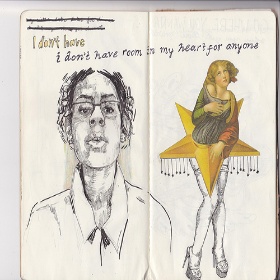 I don't have
i don't have room in my heart for anyone